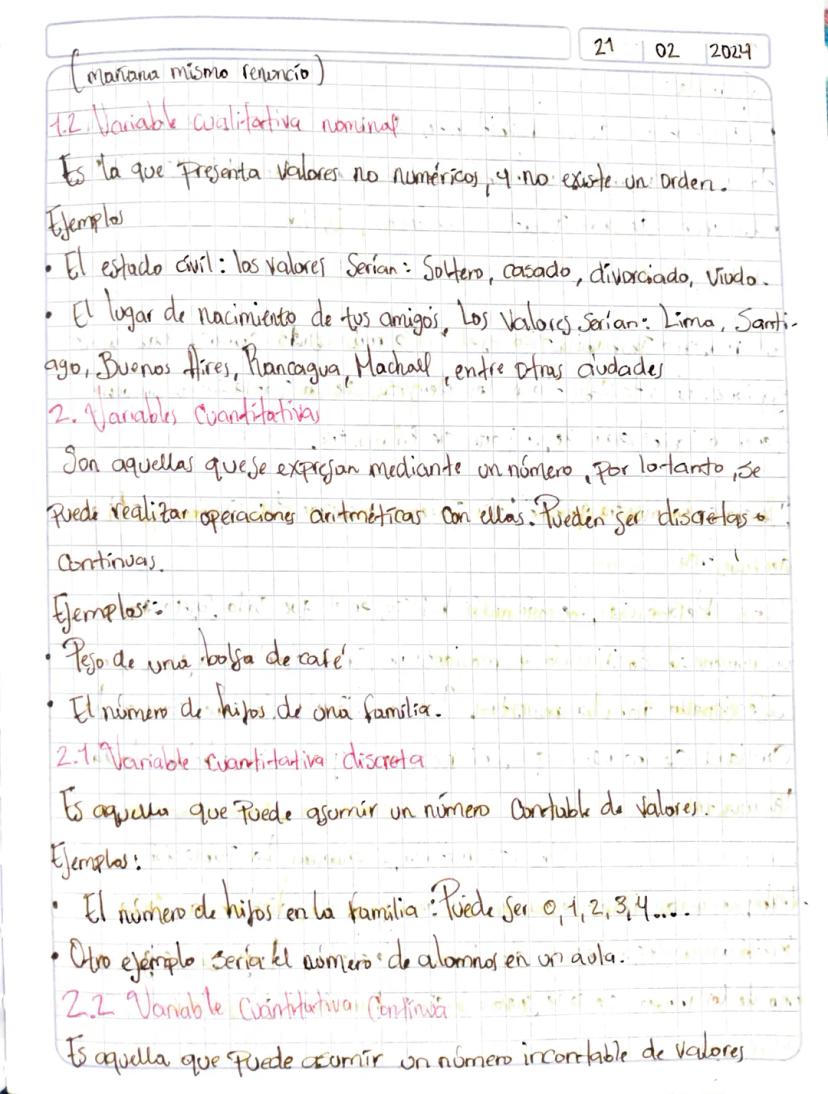 21 02 2024
(mañana mismo renuncio)
1.2. Variable cualitativa nominal
Es la que presenta valores no numéricos, y no existe un orden.
Ejemplos
• El estado civil: los valores Serían: Soltero, casado, divorciado, viudo.
• El lugar de nacimiento de tus amigos, Los Valores serian: Lima, Santi-
ago, Buenos Aires, Rancagua, Machall, entre otras ciudades
2. Variables Cuantitativas
Son aquellas que se expresan mediante un número, por lo tanto, se
puede realizar operaciones aritméticas con ellas. Pueden ser discretas o
continuas.
Ejemplos:
• Peso de una bolsa de café
• El número de hijos de una familia.
2.1. Variable cuantitativa discreta
Es aquella que Puede asumir un número Contable de valores.
Ejemplos:
• El número de hijos en la familia: Puede ser 0, 1, 2, 3, 4....
• Otro ejemplo sería el número de alumnos en un aula.
2.2 Variable Cuantitativa Continua
Es aquella que Puede asumir un número incontable de valores